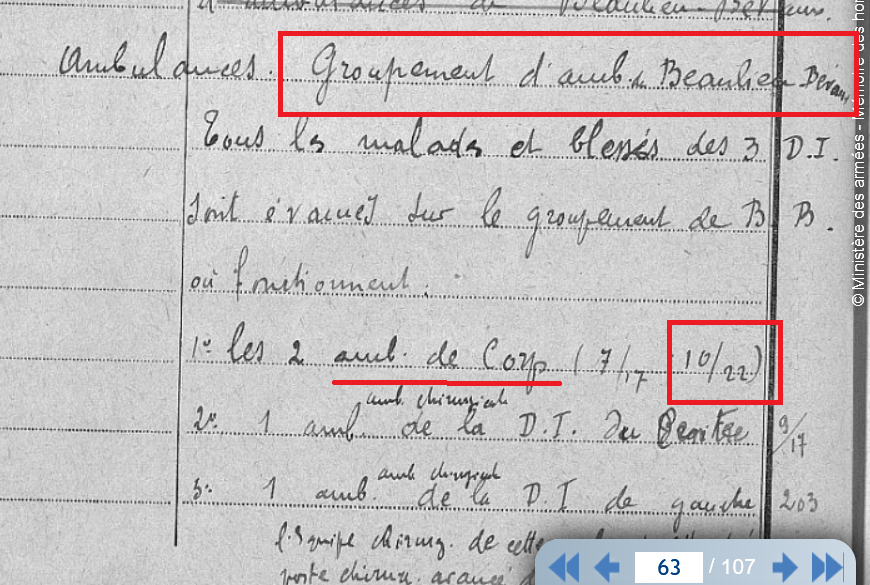 d'ambulances de Beaulieu-Béraus.
Ambulances. Groupement d'amb. de Beaulieu Béraus
Tous les malades et blessés des 3 D.I.
sont évacués sur le groupement de B B.
où fonctionnent.
1º les 2 amb. de Corps ( 7/17 10/22)
amb. chirurgicale
2º 1 amb. de la D.I. du Centre 9/17
amb chirurgicale
3º 1 amb. de la D.I de gauche 203
l'Equipe chirurg. de cette
poste chirur. avancé
© Ministère des armées - Mémoire des hom
63 / 107